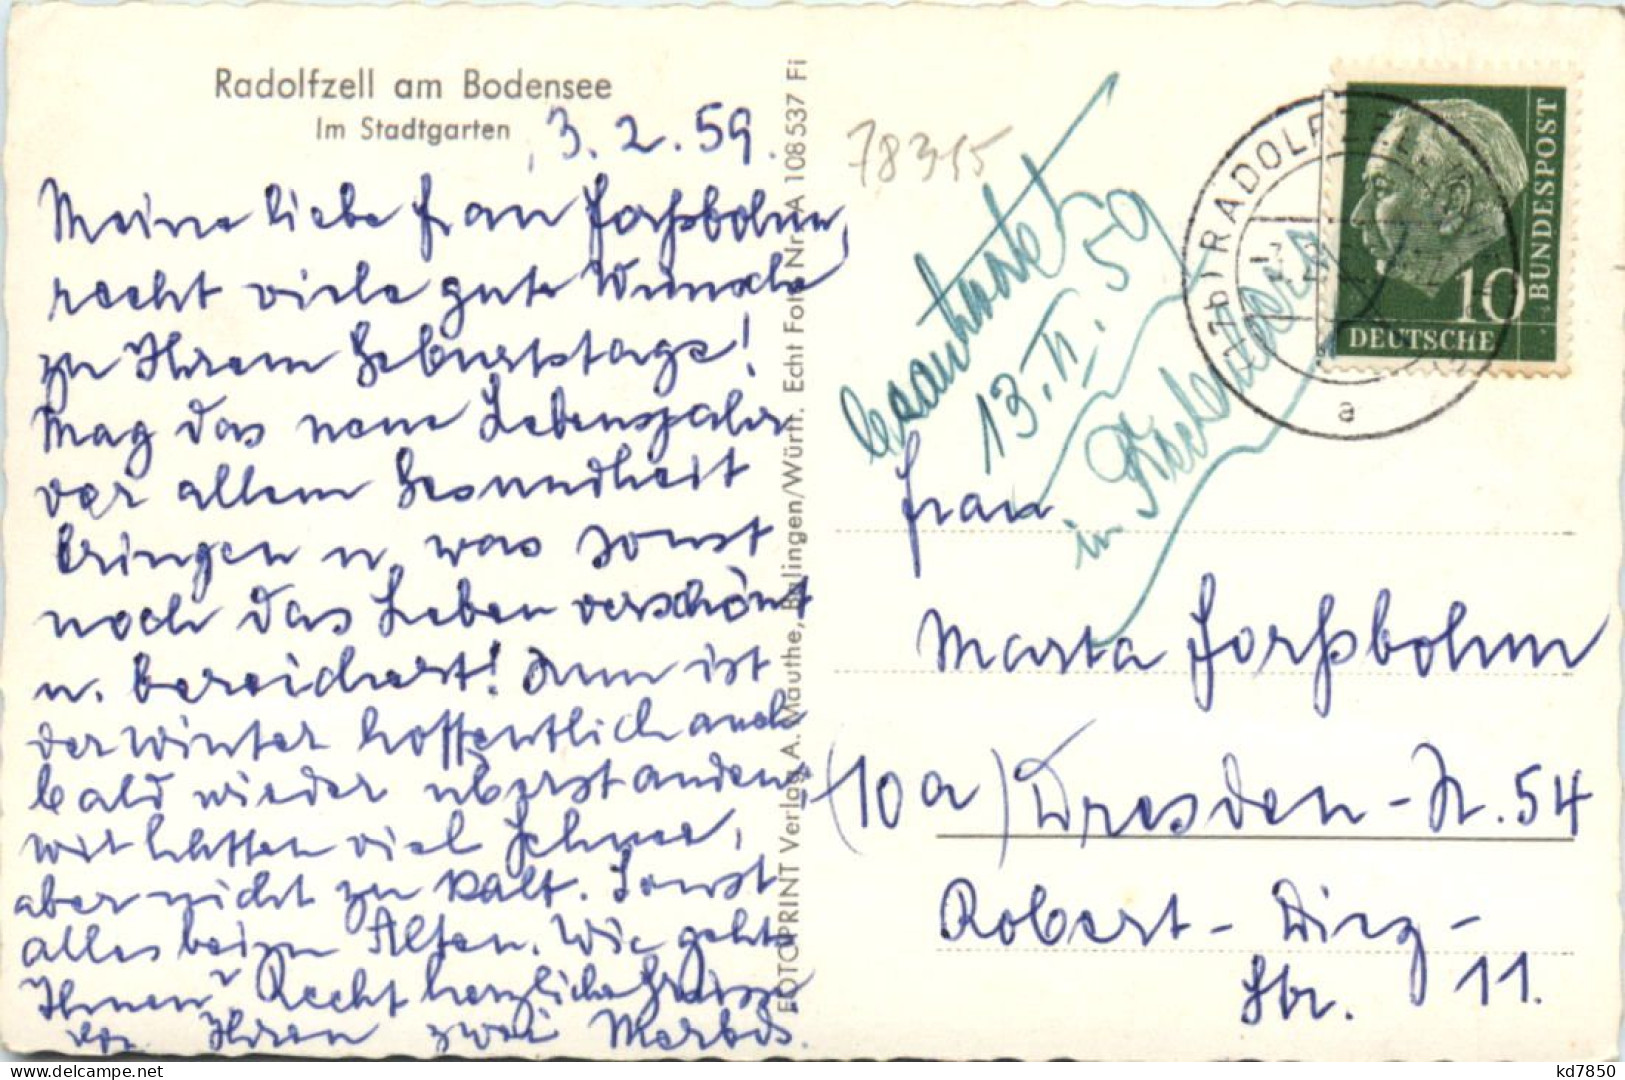 Radolfzell am Bodensee
Im Stadtgarten
3. 2. 59.
Meine liebe Frau Forßbohm,
recht viele gute Wünsche
zu Ihrem Geburtstage!
Mag das neue Lebensjahr
vor allem Gesundheit
bringen u. was sonst
noch das Leben verschönt
u. bereichert! Nun ist
der Winter hoffentlich auch
bald wieder überstanden,
wir hatten viel Schnee,
aber nicht zu kalt. Sonst
alles beim Alten. Wie geht's
Ihnen? Recht herzliche Grüsse
von Ihren zwei
FOTOPRINT Verlag A. Mauthe, Balingen/Württ. Echt Foto Nr. A 108537 Fi
78315
beantwortet
13. II. 59
in
RADOLFZELL
a
10
DEUTSCHE
BUNDESPOST
Frau
Marta Forßbohm
(10a) Dresden-N. 54
Robert-Diez-
Str. 11.
kd7850